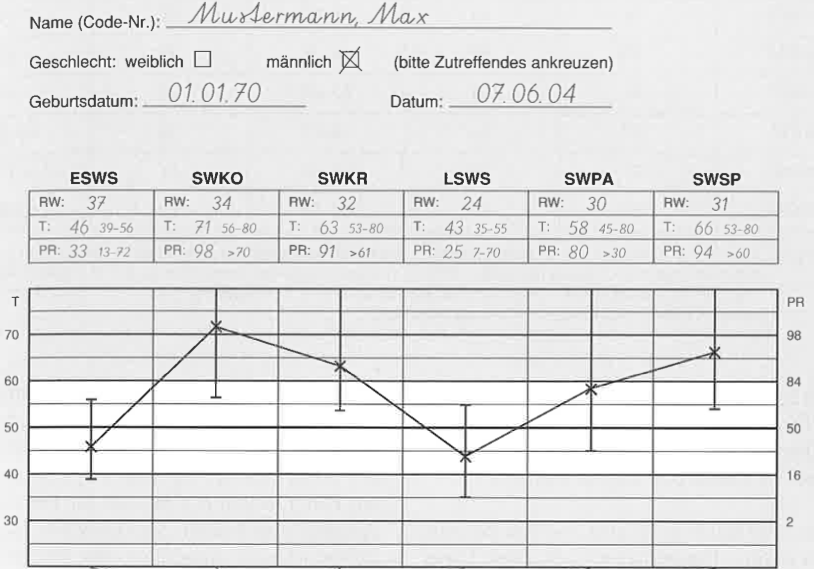 Name (Code-Nr.): Mustermann, Max
Geschlecht: weiblich ☐ männlich ☒ (bitte Zutreffendes ankreuzen)
Geburtsdatum: 01.01.70 Datum: 07.06.04
ESWS SWKO SWKR LSWS SWPA SWSP
RW: 37 RW: 34 RW: 32 RW: 24 RW: 30 RW: 31
T: 46 39-56 T: 71 56-80 T: 63 53-80 T: 43 35-55 T: 58 45-80 T: 66 53-80
PR: 33 13-72 PR: 98 >70 PR: 91 >61 PR: 25 7-70 PR: 80 >30 PR: 94 >60
T PR
70 98
60 84
50 50
40 16
30 2